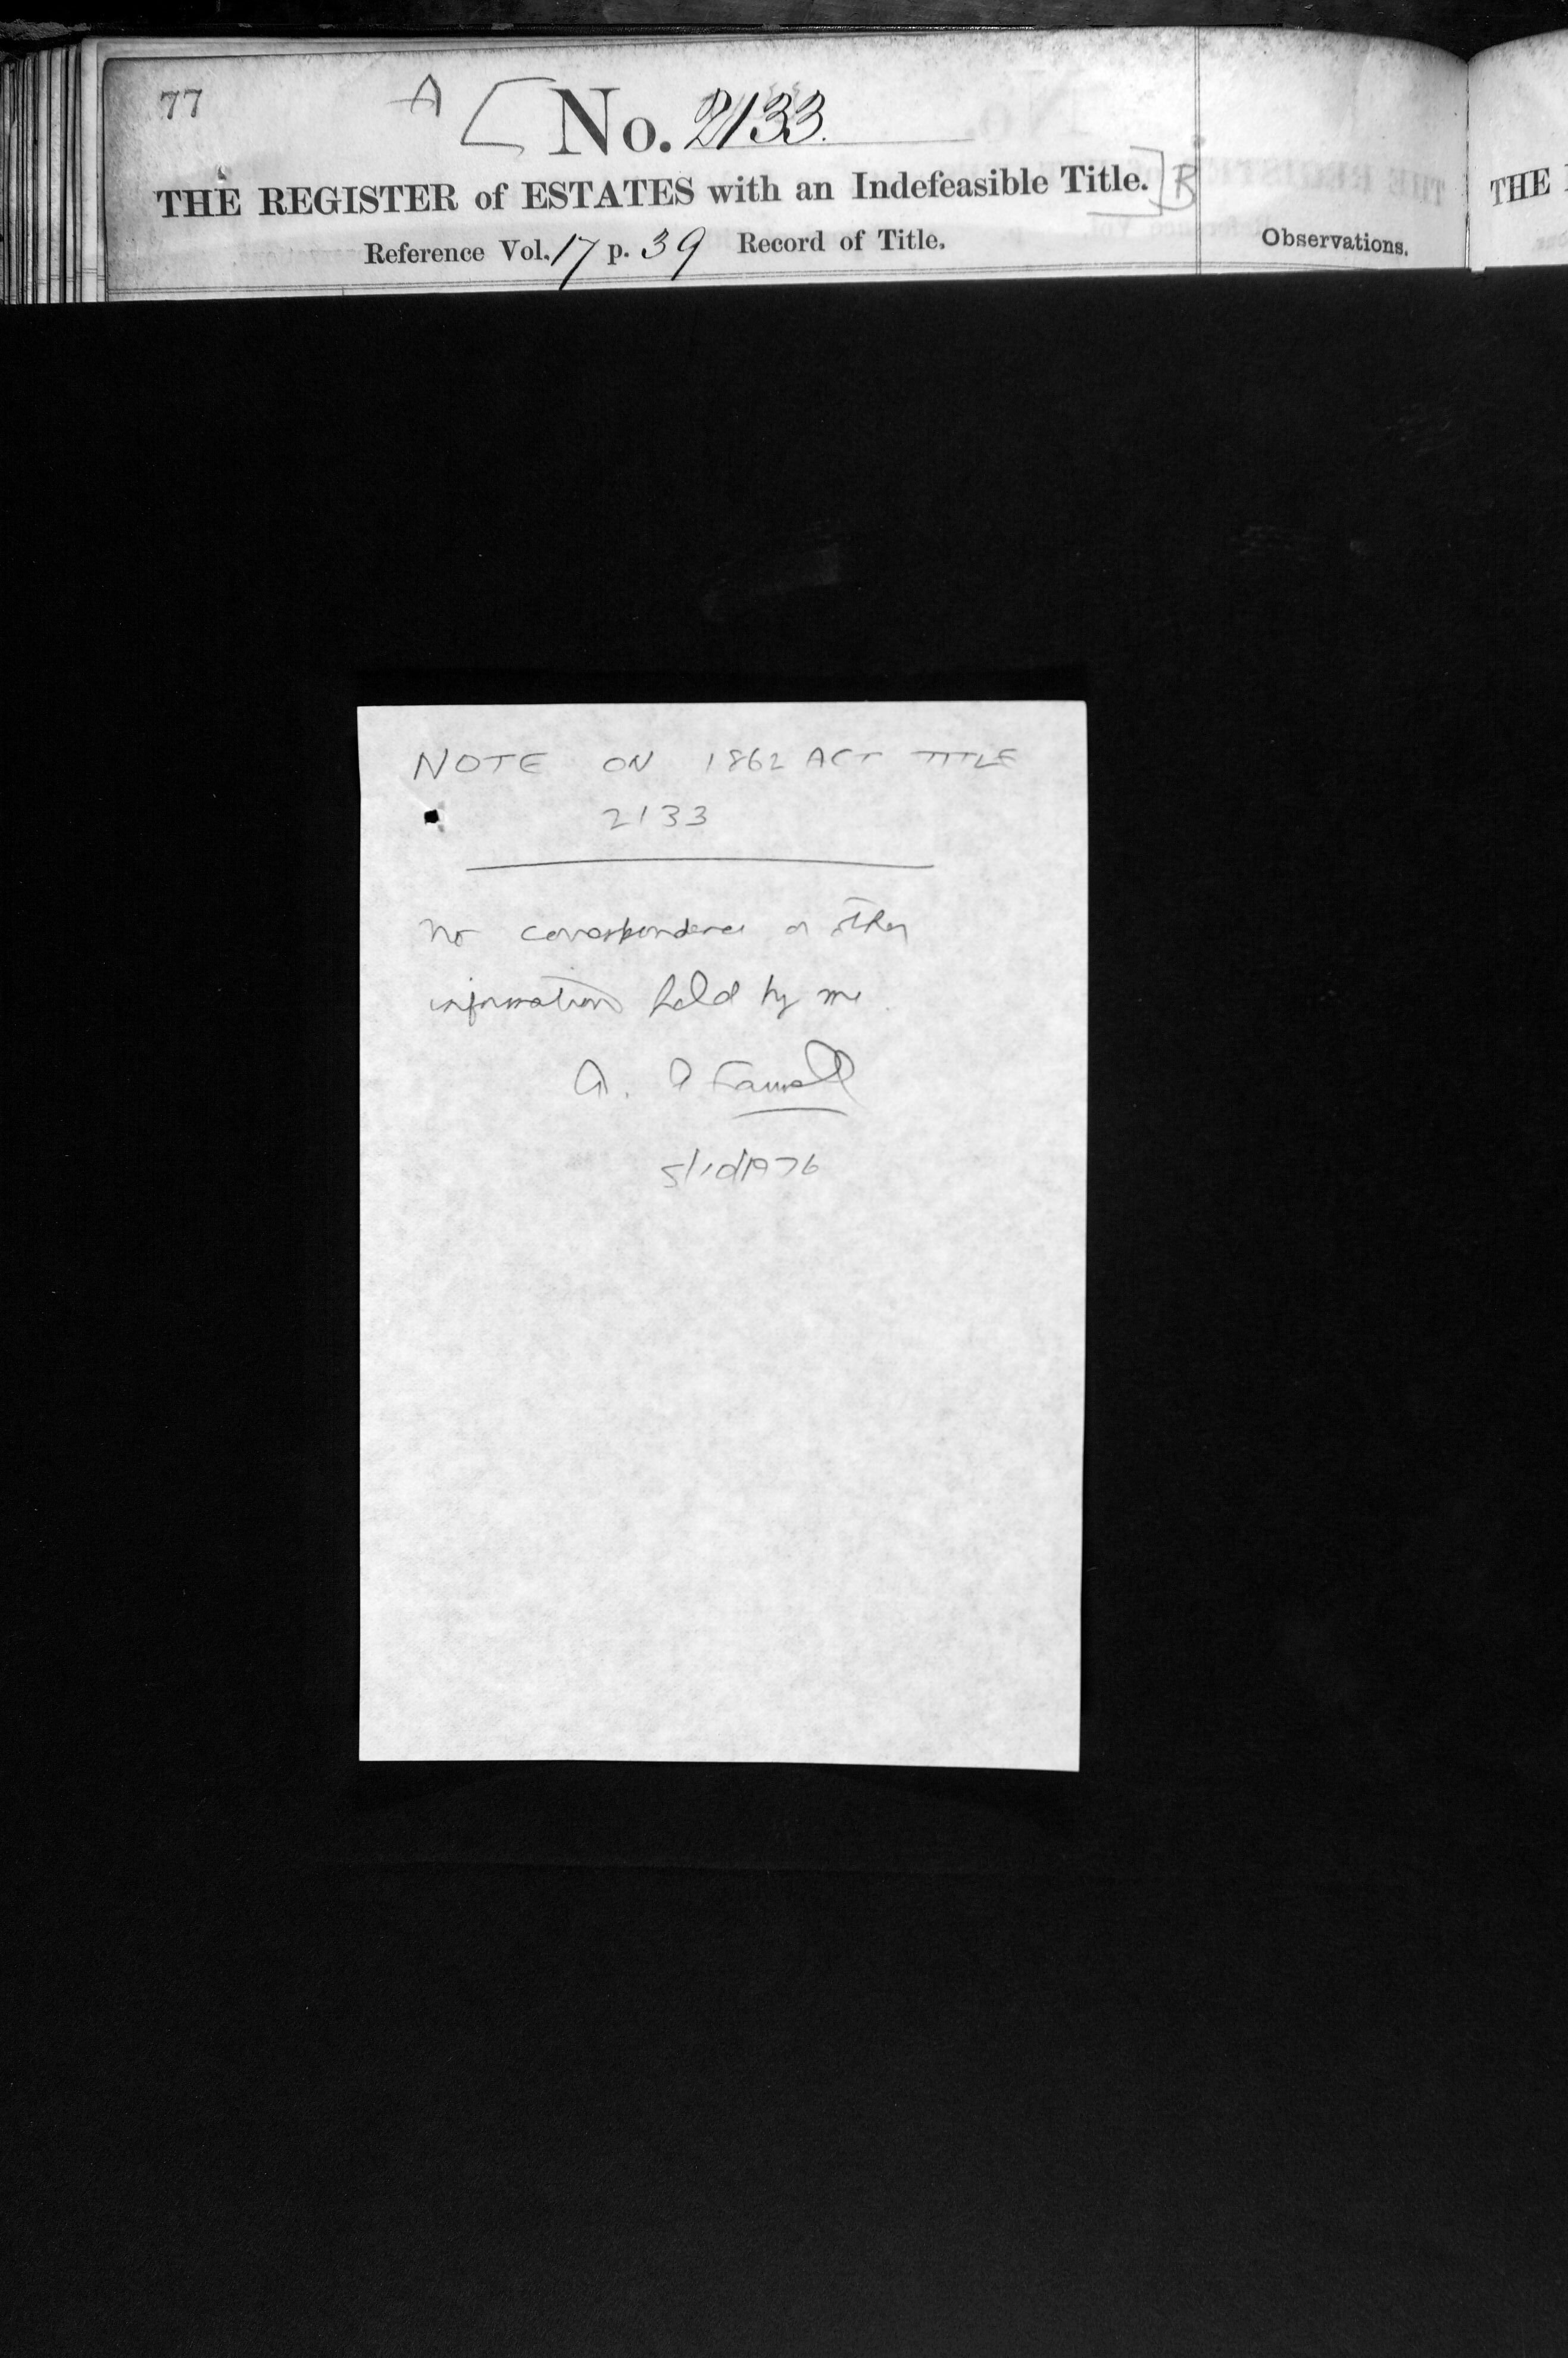 77
A [ No. 2133.
THE REGISTER of ESTATES with an Indefeasible Title. ] B
Reference Vol. 17 p. 39 Record of Title.
Observations.
THE
NOTE ON 1862 ACT TITLE
2133
No correspondence or other
information held by me
A.
5/10/1976